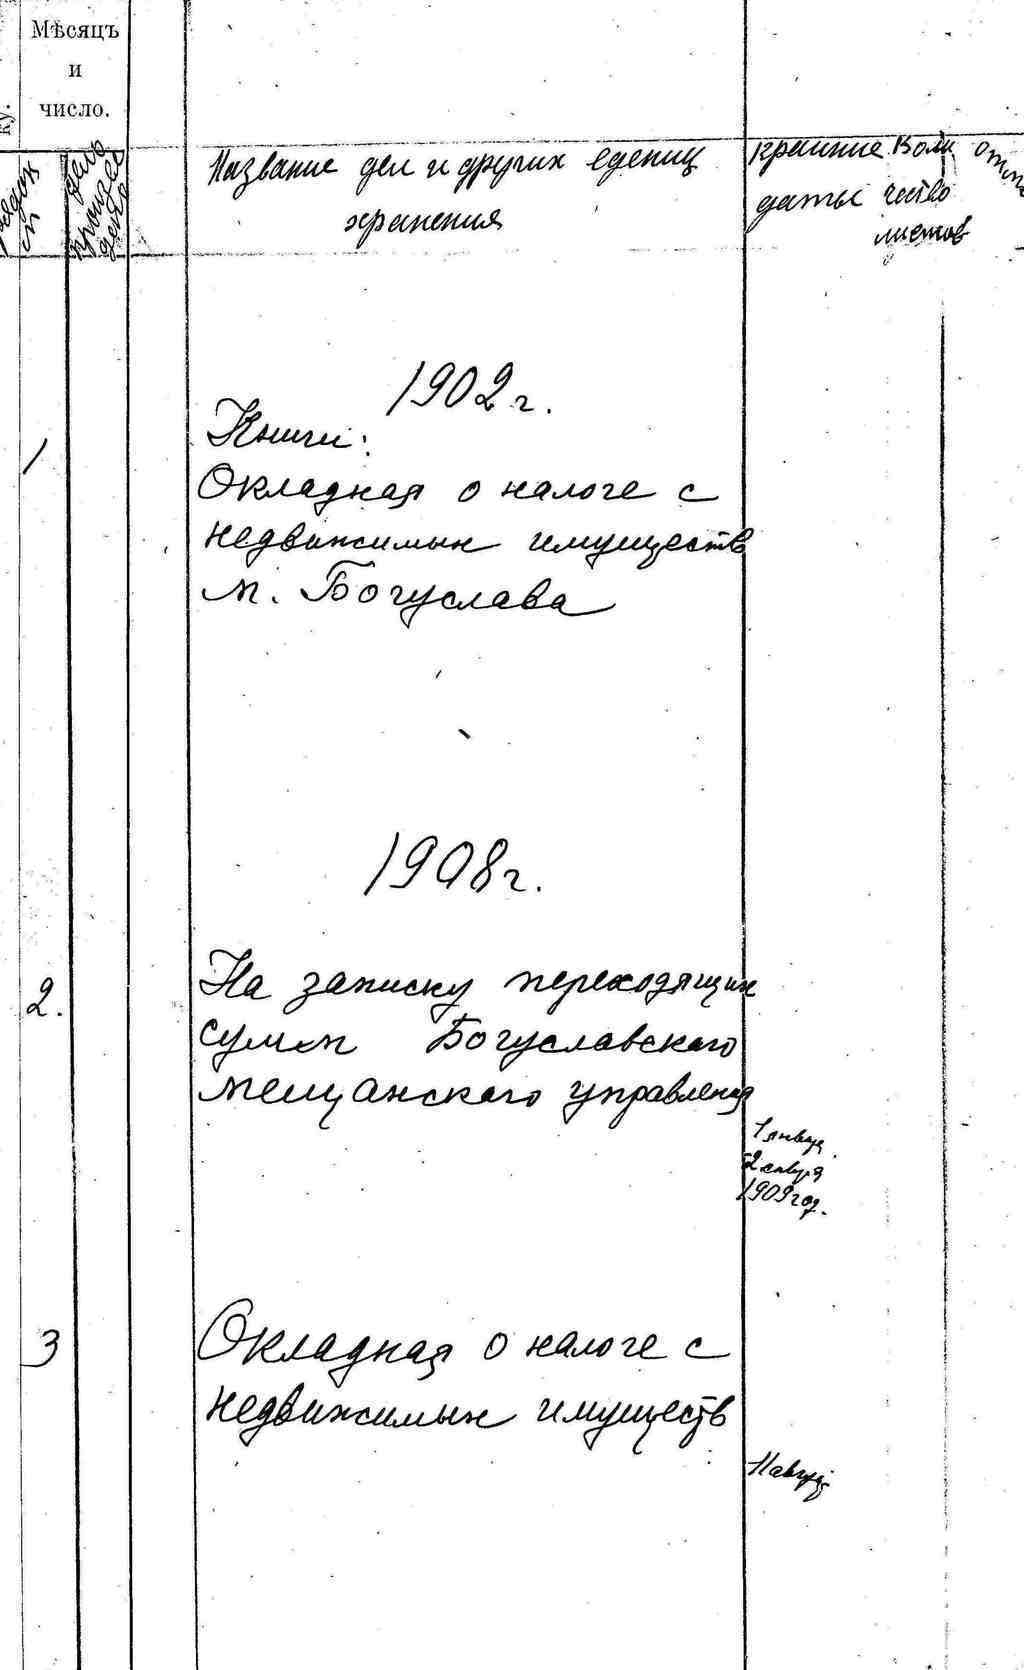 Мѣсяцъ
и
число.
ку.
Название дел и других едениц
хранения
крайние
даты
Коли
чество
листов
1902 г.
1
Книги:
Окладная о налоге с
недвижимых имуществ
м. Богуслава
1908 г.
2.
На записку переходящих
сумм Богуславского
мещанского управления
1 январ.
2 января
1909 год.
3
Окладная о налоге с
недвижимых имуществ